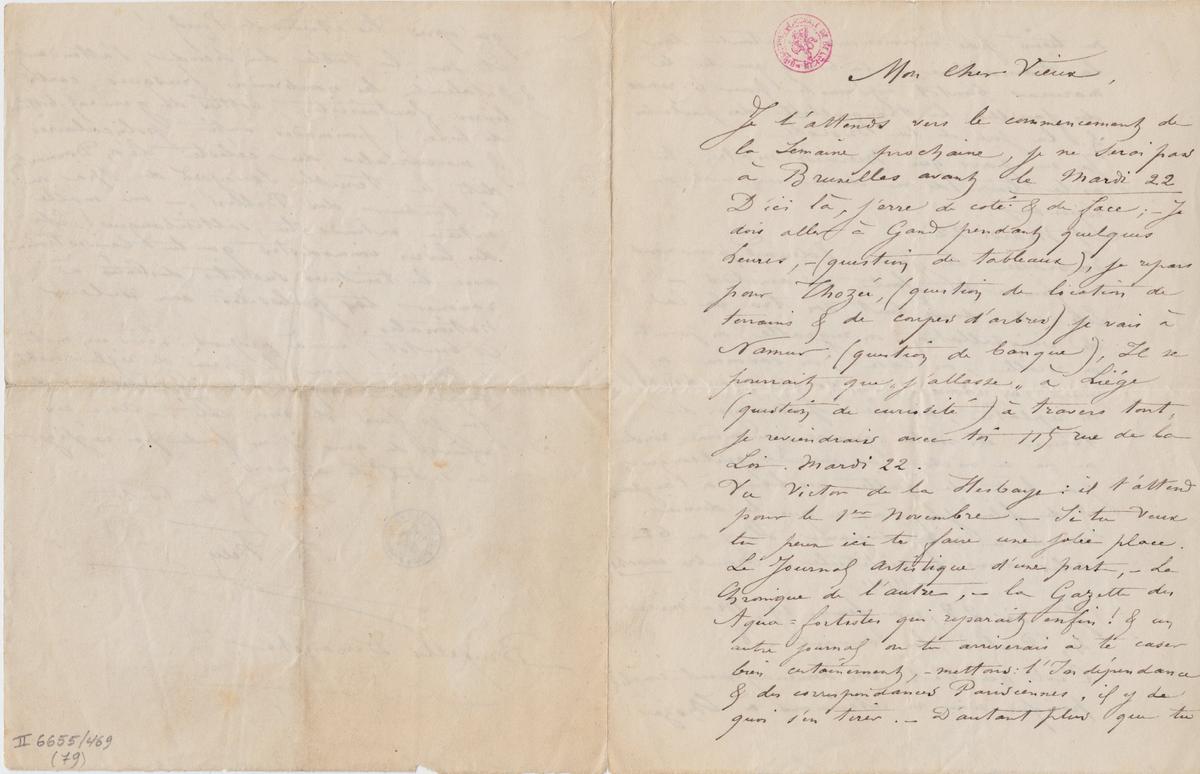 Mon Cher Vieux,
Je t'attends vers le commencement de
la Semaine prochaine, je ne serai pas
à Bruxelles avant le Mardi 22
D'ici là, j'erre de coté & de face; – Je
dois aller à Gand pendant quelques
heures, – (question de tableaux), je repars
pour Thozée, (question de location de
terrains & de coupes d'arbres) je vais à
Namur, (question de banque), Il se
pourrait que „j'allasse„ à Liége
(question de curiosité) à travers tout,
je reviendrais avec toi 115 rue de la
Loi. Mardi 22.
Vu Victor de la Hesbaye: il t'attend
pour le 1er Novembre. – Si tu veux
tu peux ici te faire une jolie place.
Le Journal artistique d'une part, – La
Chronique de l'autre, – la Gazette des
Aqua=fortistes qui reparait enfin! & un
autre journal où tu arriverais à te caser
bien certainement, – mettons: l'Indépendance
& des correspondances Parisiennes, il y de
quoi s'en tirer. – D'autant plus que tu
II 6655/469
(79)